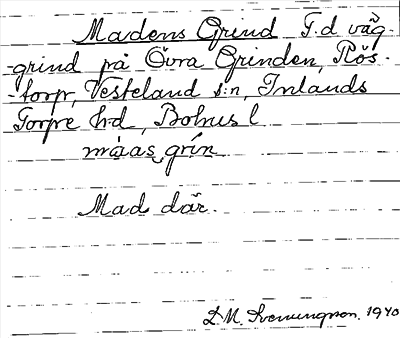 Madens Grind F.d väg-
-grind på Övra Grinden, Rös-
-torp, Vesteland s:n, Inlands
Torpe h-d, Bohus l
màias grín
Mad där.
D.M. Svenungson. 1940